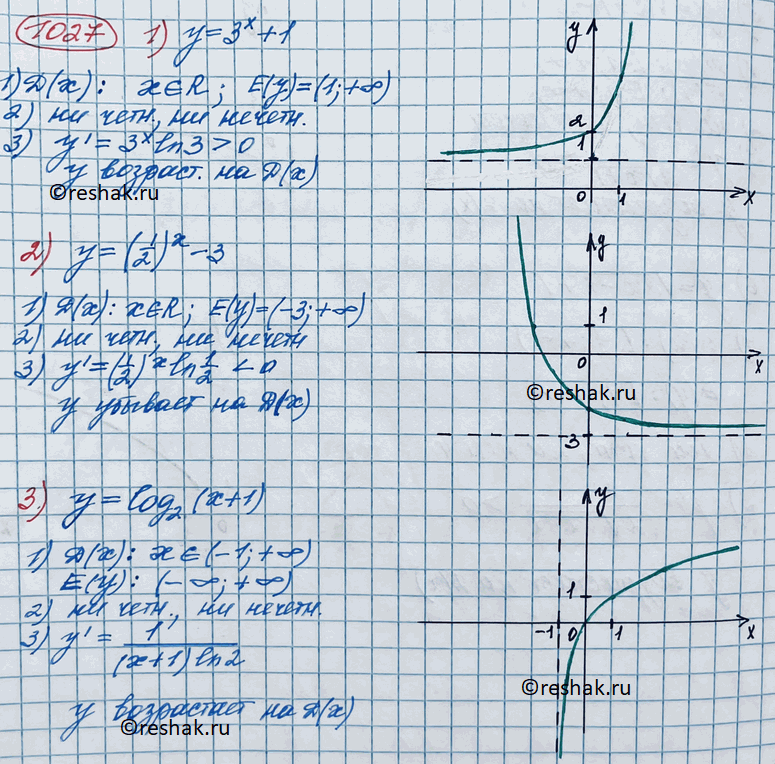 1027 1) y = 3ˣ + 1
1) D(x): x ∈ R; E(y) = (1; +∞)
2) ни четн., ни нечетн.
3) y' = 3ˣ ln 3 > 0
y возраст. на D(x)
©reshak.ru
y
2
1
0
1
x
2) y = (1/2)ˣ - 3
1) D(x): x ∈ R; E(y) = (-3; +∞)
2) ни четн., ни нечетн
3) y' = (1/2)ˣ ln 1/2 < 0
y убывает на D(x)
y
1
0
x
©reshak.ru
3
3.) y = log₂ (x+1)
1) D(x): x ∈ (-1; +∞)
E(y): (-∞; +∞)
2) ни четн., ни нечетн.
3) y' = 1/((x+1) ln 2)
y возрастает на D(x)
©reshak.ru
y
1
-1
0
1
x
©reshak.ru